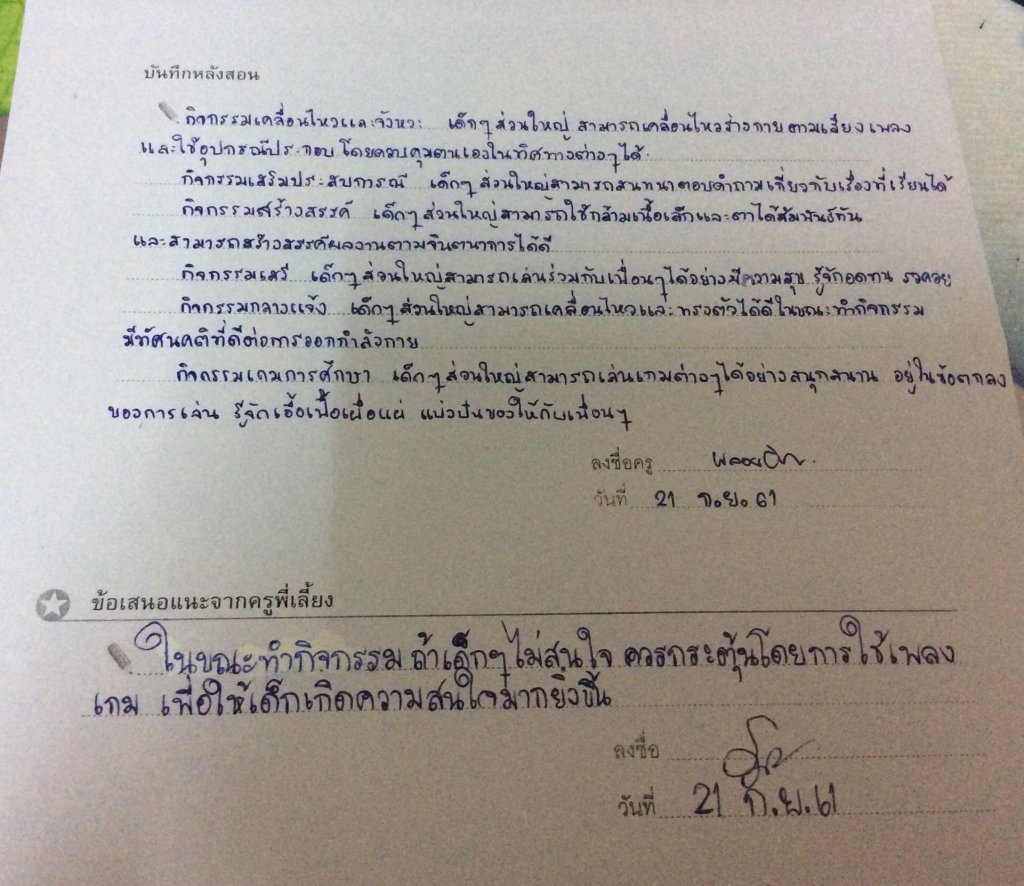 บันทึกหลังสอน
กิจกรรมเคลื่อนไหวและจังหวะ เด็กๆส่วนใหญ่ สามารถเคลื่อนไหวร่างกายตามเสียงเพลง
และใช้อุปกรณ์ประกอบโดยควบคุมตนเองในทิศทางต่างๆได้
กิจกรรมเสริมประสบการณ์ เด็กๆส่วนใหญ่สามารถสนทนาตอบคำถามเกี่ยวกับเรื่องที่เรียนได้
กิจกรรมสร้างสรรค์ เด็กๆส่วนใหญ่สามารถใช้กล้ามเนื้อเล็กและตาได้สัมพันธ์กัน
และสามารถสร้างสรรค์ผลงานตามจินตนาการได้ดี
กิจกรรมเสรี เด็กๆส่วนใหญ่สามารถเล่นร่วมกับเพื่อนๆได้อย่างมีความสุข รู้จักอดทน รอคอย
กิจกรรมกลางแจ้ง เด็กๆส่วนใหญ่สามารถเคลื่อนไหวและทรงตัวได้ดีในขณะทำกิจกรรม
มีทัศนคติที่ดีต่อการออกกำลังกาย
กิจกรรมเกมการศึกษา เด็กๆส่วนใหญ่สามารถเล่นเกมต่างๆได้อย่างสนุกสนาน อยู่ในข้อตกลง
ของการเล่น รู้จักเอื้อเฟื้อเผื่อแผ่ แบ่งปันของให้กับเพื่อนๆ
ลงชื่อครู
วันที่ 21 ก.ย. 61
ข้อเสนอแนะจากครูพี่เลี้ยง
ในขณะทำกิจกรรม ถ้าเด็กๆไม่สนใจ ควรกระตุ้นโดยการใช้เพลง
เกม เพื่อให้เด็กเกิดความสนใจมากยิ่งขึ้น
ลงชื่อ
วันที่ 21 ก.ย. 61